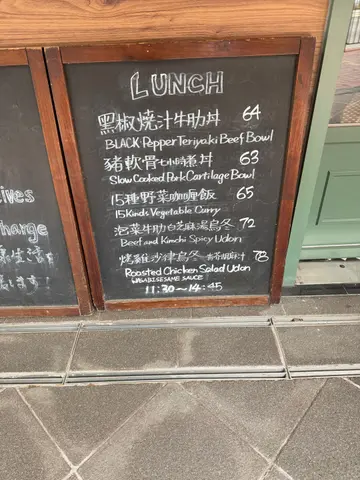 LUNCH
黑椒燒汁牛肋丼 64
BLACK Pepper Teriyaki Beef Bowl
豬軟骨七小時煮丼 63
Slow Cooked Pork Cartilage Bowl
15種野菜咖喱飯 65
15 Kinds Vegetable Curry
泡菜牛肋白芝麻湯烏冬 72
Beef and Kimchi Spicy Udon
燒雞沙律烏冬 78
Roasted Chicken Salad Udon
WASABI SESAME SAUCE
11:30~14:45
ives
harge